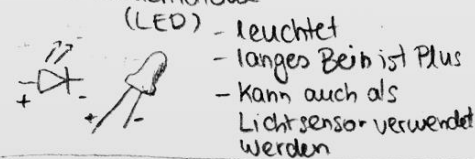 (LED)
- leuchtet
- langes Bein ist Plus
- Kann auch als
Lichtsensor verwendet
werden
+ -
+ -